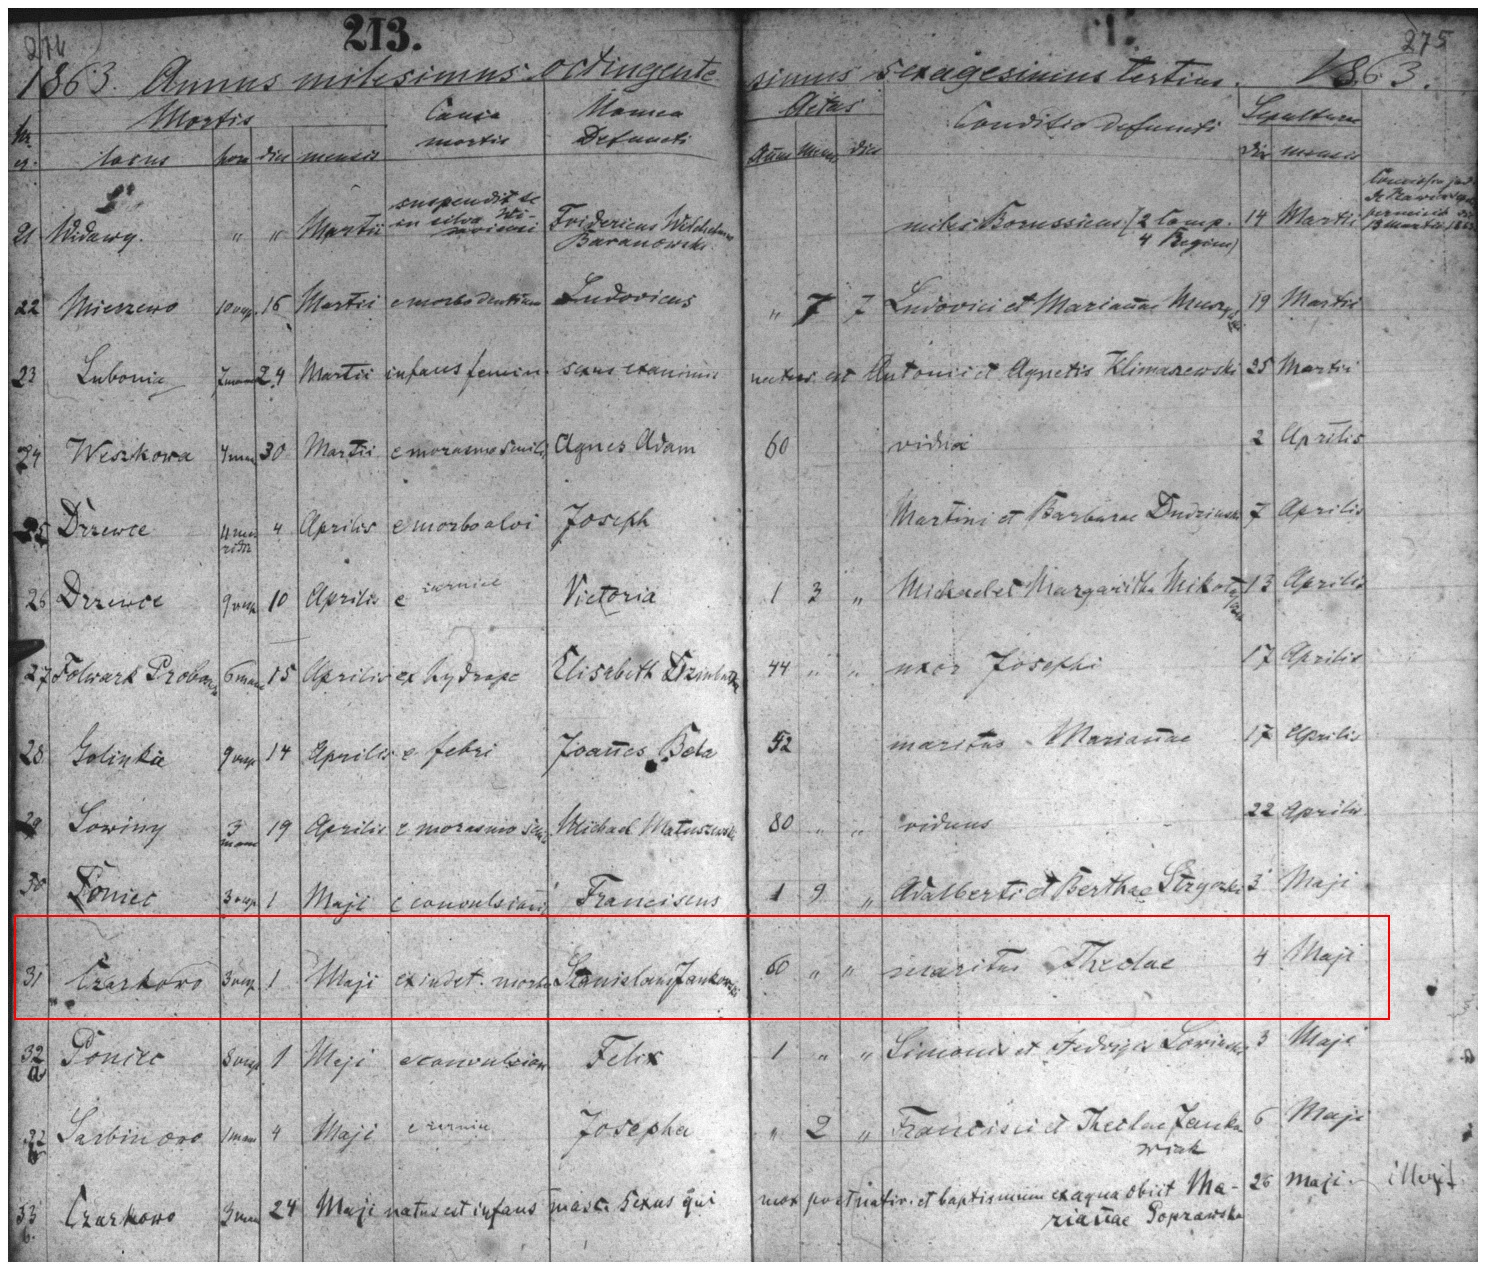 274 213. 275
1863. Annus milesimus octingente simus sexagesimus tertius. 1863.
Mortis Causa mortis Nomen Defuncti Aetas Conditio defuncti Sepulturae
locus hora dies mensis Anni Mens dies dies mensis
21 Widawy. " " Martii suspendit se in silva Fridericus Wilhelmus Baranowski miles Borussicus (2 Comp. 4 Regim) 14 Martii
22 Mierzewo 10 vesp. 16 Martii e morbo dentium Ludovicus " 7 7 Ludovici et Mariañae 19 Martii
23 Lubonia 24 Martii infans femin. sexus exanimis natus est Antonii et Agnetis Klimaszewski 25 Martii
24 Weszkowa 4 man 30 Martii e morasmo senili Agnes Adam 60 vidua 2 Aprilis
25 Drzewce 4 Aprilis e morbo alvi Joseph Martini et Barbarae 7 Aprilis
26 Drzewce 9 vesp 10 Aprilis e Victoria 1 3 " Michael et Margaritha 13 Aprilis
27 Folwark 6 mane 15 Aprilis ex hydrope Elisabeth 44 " " uxor Josephi 17 Aprilis
28 Golinka 9 vesp 14 Aprilis e febri Joañes Bola 52 maritus Mariañae 17 Aprilis
29 Sowiny 3 mane 19 Aprilis e morasmo Michael Matuszewski 80 " " viduus 22 Aprilis
30 Poniec 3 vesp 1 Maji e convulsioni Franciscus 1 9 " Adalberti et Berthae 3 Maji
31 Czarkowo 3 vesp 1 Maji ex indet. morbo Stanislaus Jankowski 60 " " maritus Theclae 4 Maji
32 a Poniec 8 vesp 1 Maji e convulsion Felix 1 " " Simonis et Hedvigis 3 Maji
32 b Sarbinowo 1 man 4 Maji e Josepha " 2 " Francisci et Theclae Jankowiak 6 Maji
33 b. Czarkowo 3 24 Maji natus est infans masc. sexus qui mox post nativ. et baptismum ex aqua obiit Mariañae Poprawska 26 Maji. illegit.